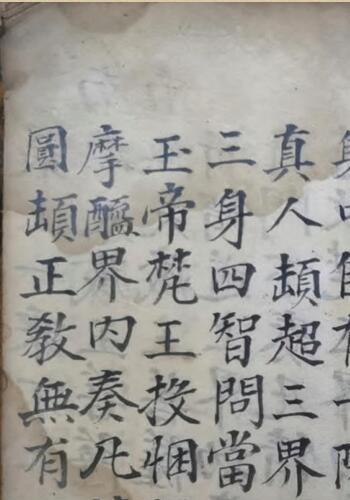 身中自有一
真人頓超三界
三身四智問當
玉帝梵王投悃
摩醯界内奏凡
圓頓正教無有